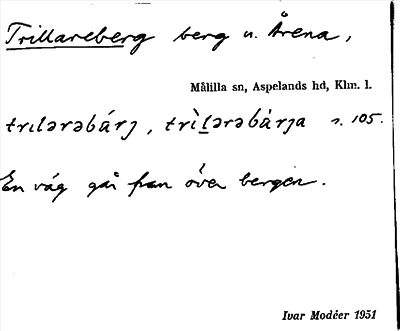 Trillareberg berg u. Årena,
Målilla sn, Aspelands hd, Klm. l.
trɩlərəbárj, trìl̠ərəbàrja s. 105.
En väg går fram över bergen.
Ivar Modéer 1951